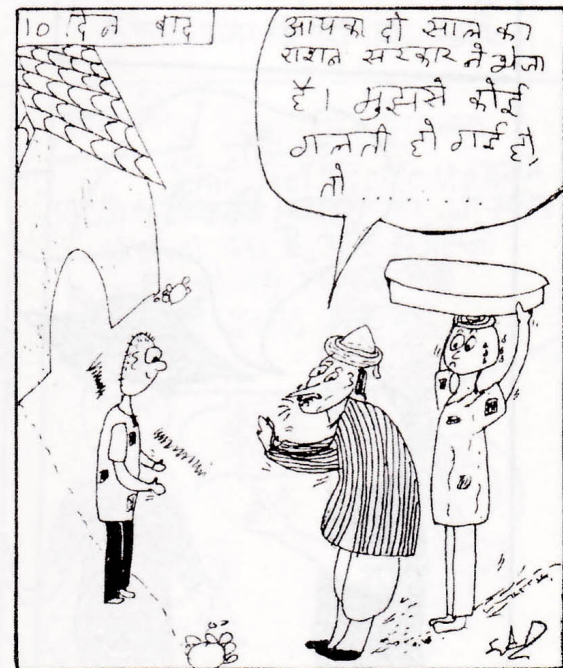 10 दिन बाद
आपका दो साल का
राशन सरकार ने भेजा
है। मुझसे कोई
गलती हो गई हो,
तो..........